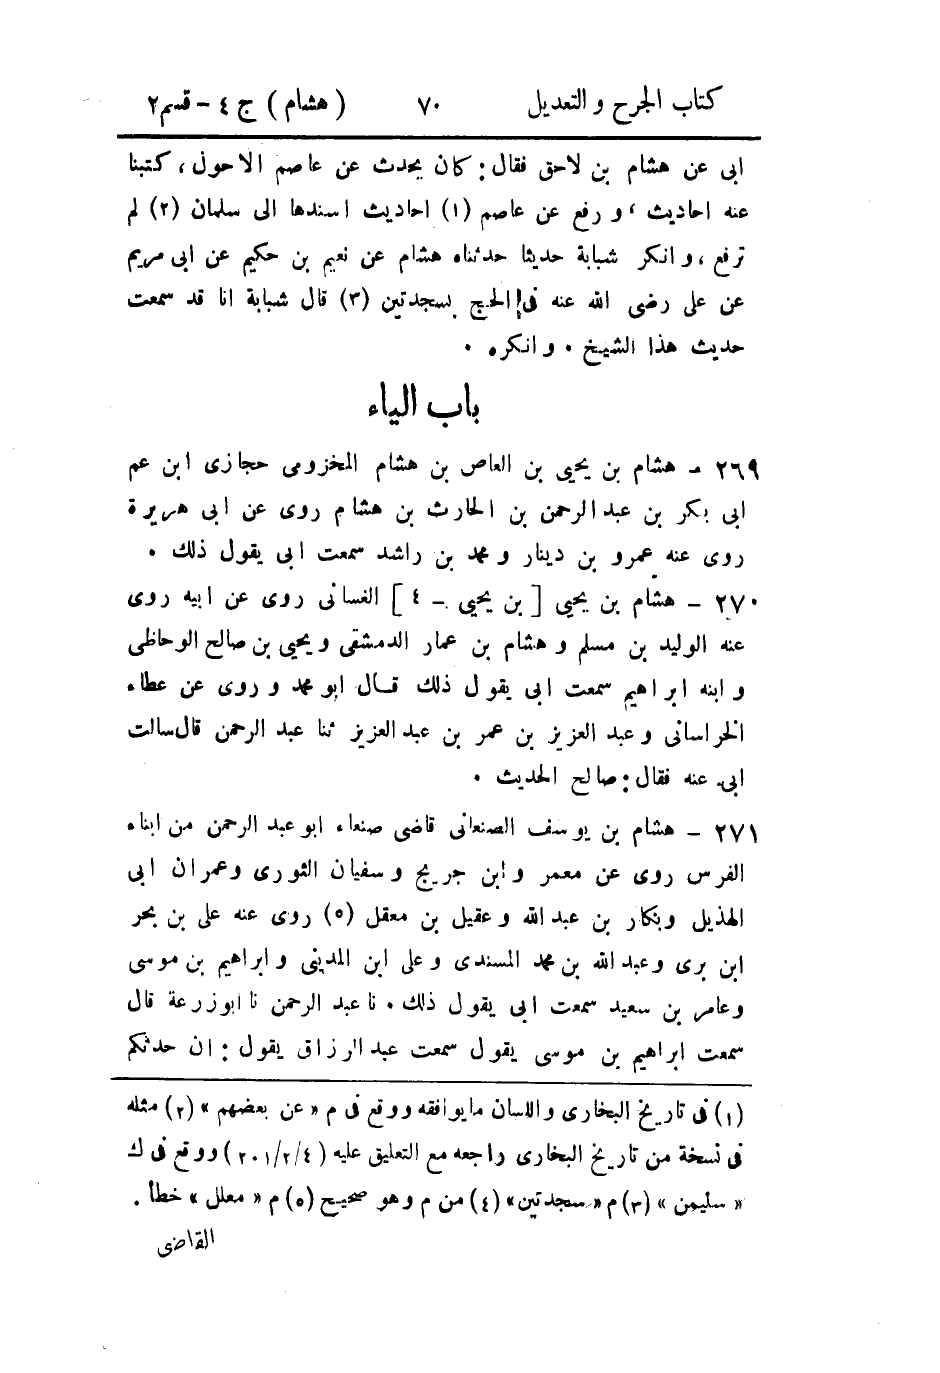 كتاب الجرح و التعديل ٧٠ ( هشام ) ج ٤ - قسم ٢
ابى عن هشام بن لاحق فقال : كان يحدث عن عاصم الاحول ، كتبنا
عنه احاديث ، و رفع عن عاصم (١) احاديث اسندها الى سلمان (٢) لم
ترفع ، و انكر شبابة حديثا حدثناه هشام عن نعيم بن حكيم عن ابى مريم
عن على رضى الله عنه فى الحج بسجدتين (٣) قال شبابة انا قد سمعت
حديث هذا الشيخ . و انكره .
باب الياء
٢٦٩ - هشام بن يحيى بن العاص بن هشام المخزومى حجازى ابن عم
ابى بكر بن عبد الرحمن بن الحارث بن هشام روى عن ابى هريرة
روى عنه عمرو بن دينار و محمد بن راشد سمعت ابى يقول ذلك .
٢٧٠ - هشام بن يحيى [ بن يحيى - ٤ ] الغسانى روى عن ابيه روى
عنه الوليد بن مسلم و هشام بن عمار الدمشقى و يحيى بن صالح الوحاظى
و ابنه ابراهيم سمعت ابى يقول ذلك قال ابو محمد و روى عن عطاء
الخراسانى و عبد العزيز بن عمر بن عبد العزيز ثنا عبد الرحمن قال سالت
ابى عنه فقال : صالح الحديث .
٢٧١ - هشام بن يوسف الصنعانى قاضى صنعاء ابو عبد الرحمن من ابناء
الفرس روى عن معمر و ابن جريج و سفيان الثورى و عمران ابى
الهذيل و بكار بن عبد الله و عقيل بن معقل (٥) روى عنه على بن بحر
ابن برى و عبد الله بن محمد المسندى و على ابن المدينى و ابراهيم بن موسى
و عامر بن سعيد سمعت ابى يقول ذلك . نا عبد الرحمن نا ابو زرعة قال
سمعت ابراهيم بن موسى يقول سمعت عبد الرزاق يقول : ان حدثكم
(١) فى تاريخ البخارى واللسان ما يوافقه ووقع فى م « عن بعضهم » (٢) مثله
فى نسخة من تاريخ البخارى راجعه مع التعليق عليه ( ٢٠١/٢/٤ ) ووقع فى ك
« سليمن » (٣) م « سجدتين » (٤) من م وهو صحيح (٥) م « معلل » خطأ .
القاضى